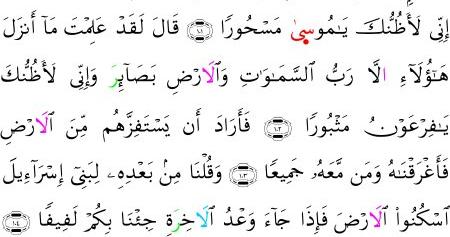 إِنِّى لَأَظُنُّكَ يَـٰمُوسىٰ مَسْحُورًا ۝١٠١ قَالَ لَقَدْ عَلِمْتَ مَآ أَنزَلَ
هَـٰٓؤُلَآءِ الَّا رَبُّ ٱلسَّمَـٰوَٰتِ وَٱلَارْضِ بَصَآئِرَ وَإِنِّى لَأَظُنُّكَ
يَـٰفِرْعَوْنُ مَثْبُورًا ۝١٠٢ فَأَرَادَ أَن يَسْتَفِزَّهُم مِّنَ ٱلَارْضِ
فَأَغْرَقْنَـٰهُ وَمَن مَّعَهُۥ جَمِيعًا ۝١٠٣ وَقُلْنَا مِنۢ بَعْدِهِۦ لِبَنِىٓ إِسْرَآءِيلَ
ٱسْكُنُوا۟ ٱلَارْضَ فَإِذَا جَآءَ وَعْدُ ٱلَاخِرَةِ جِئْنَا بِكُمْ لَفِيفًا ۝١٠٤